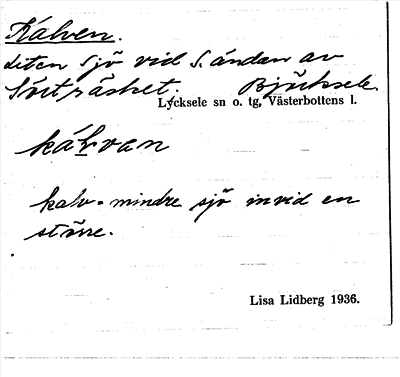 Kalven.
Liten sjö vid S. ändan av
Björksele.
Lycksele sn o. tg, Västerbottens l.
kalv = mindre sjö invid en
större.
Lisa Lidberg 1936.